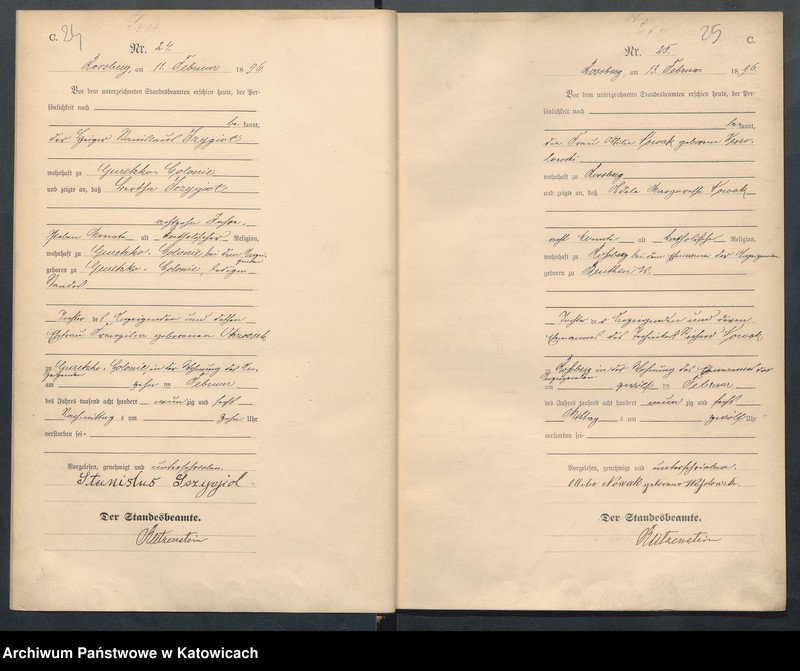 C. 24
Nr. 24.
Rossberg, am 11. Februar 1896.
Vor dem unterzeichneten Standesbeamten erschien heute, der Per-
sönlichkeit nach
be kannt,
der Häuer Stanislaus
wohnhaft zu Guretzko-Colonie
und zeigte an, daß Bertha
achtzehn Jahre,
sieben Monate alt katholischer Religion,
wohnhaft zu Guretzko-Colonie, bei dem Anzei-
genden
geboren zu Guretzko-Colonie, ledigen
Standes
Tochter des Anzeigenden und dessen
Ehefrau geborenen
zu Guretzko-Colonie in der Wohnung des An-
zeigenden
am zehn ten Februar
des Jahres tausend acht hundert neun zig und sechs
Nachmittag s um zehn Uhr
verstorben sei.
Vorgelesen, genehmigt und unterschrieben.
Der Standesbeamte.
25 C.
Nr. 25.
Rossberg, am 13. Februar 1896.
Vor dem unterzeichneten Standesbeamten erschien heute, der Per-
sönlichkeit nach
be kannt,
die Frau Ottilie Nowak geborene
wohnhaft zu Rossberg
und zeigte an, daß Adele Margarethe Nowak
acht Monate alt katholischer Religion,
wohnhaft zu Roßberg bei dem Ehemann der Anzeigenden
geboren zu Beuthen
Tochter der Anzeigenden und deren
Ehemannes des Technikers Richard Nowak
zu Roßberg in der Wohnung des Ehemannes der
Anzeigenden
am zwölf ten Februar
des Jahres tausend acht hundert neun zig und sechs
Mittag s um zwölf Uhr
verstorben sei.
Vorgelesen, genehmigt und unterschrieben.
Ottilie Nowak geborene
Der Standesbeamte.
Archiwum Państwowe w Katowicach